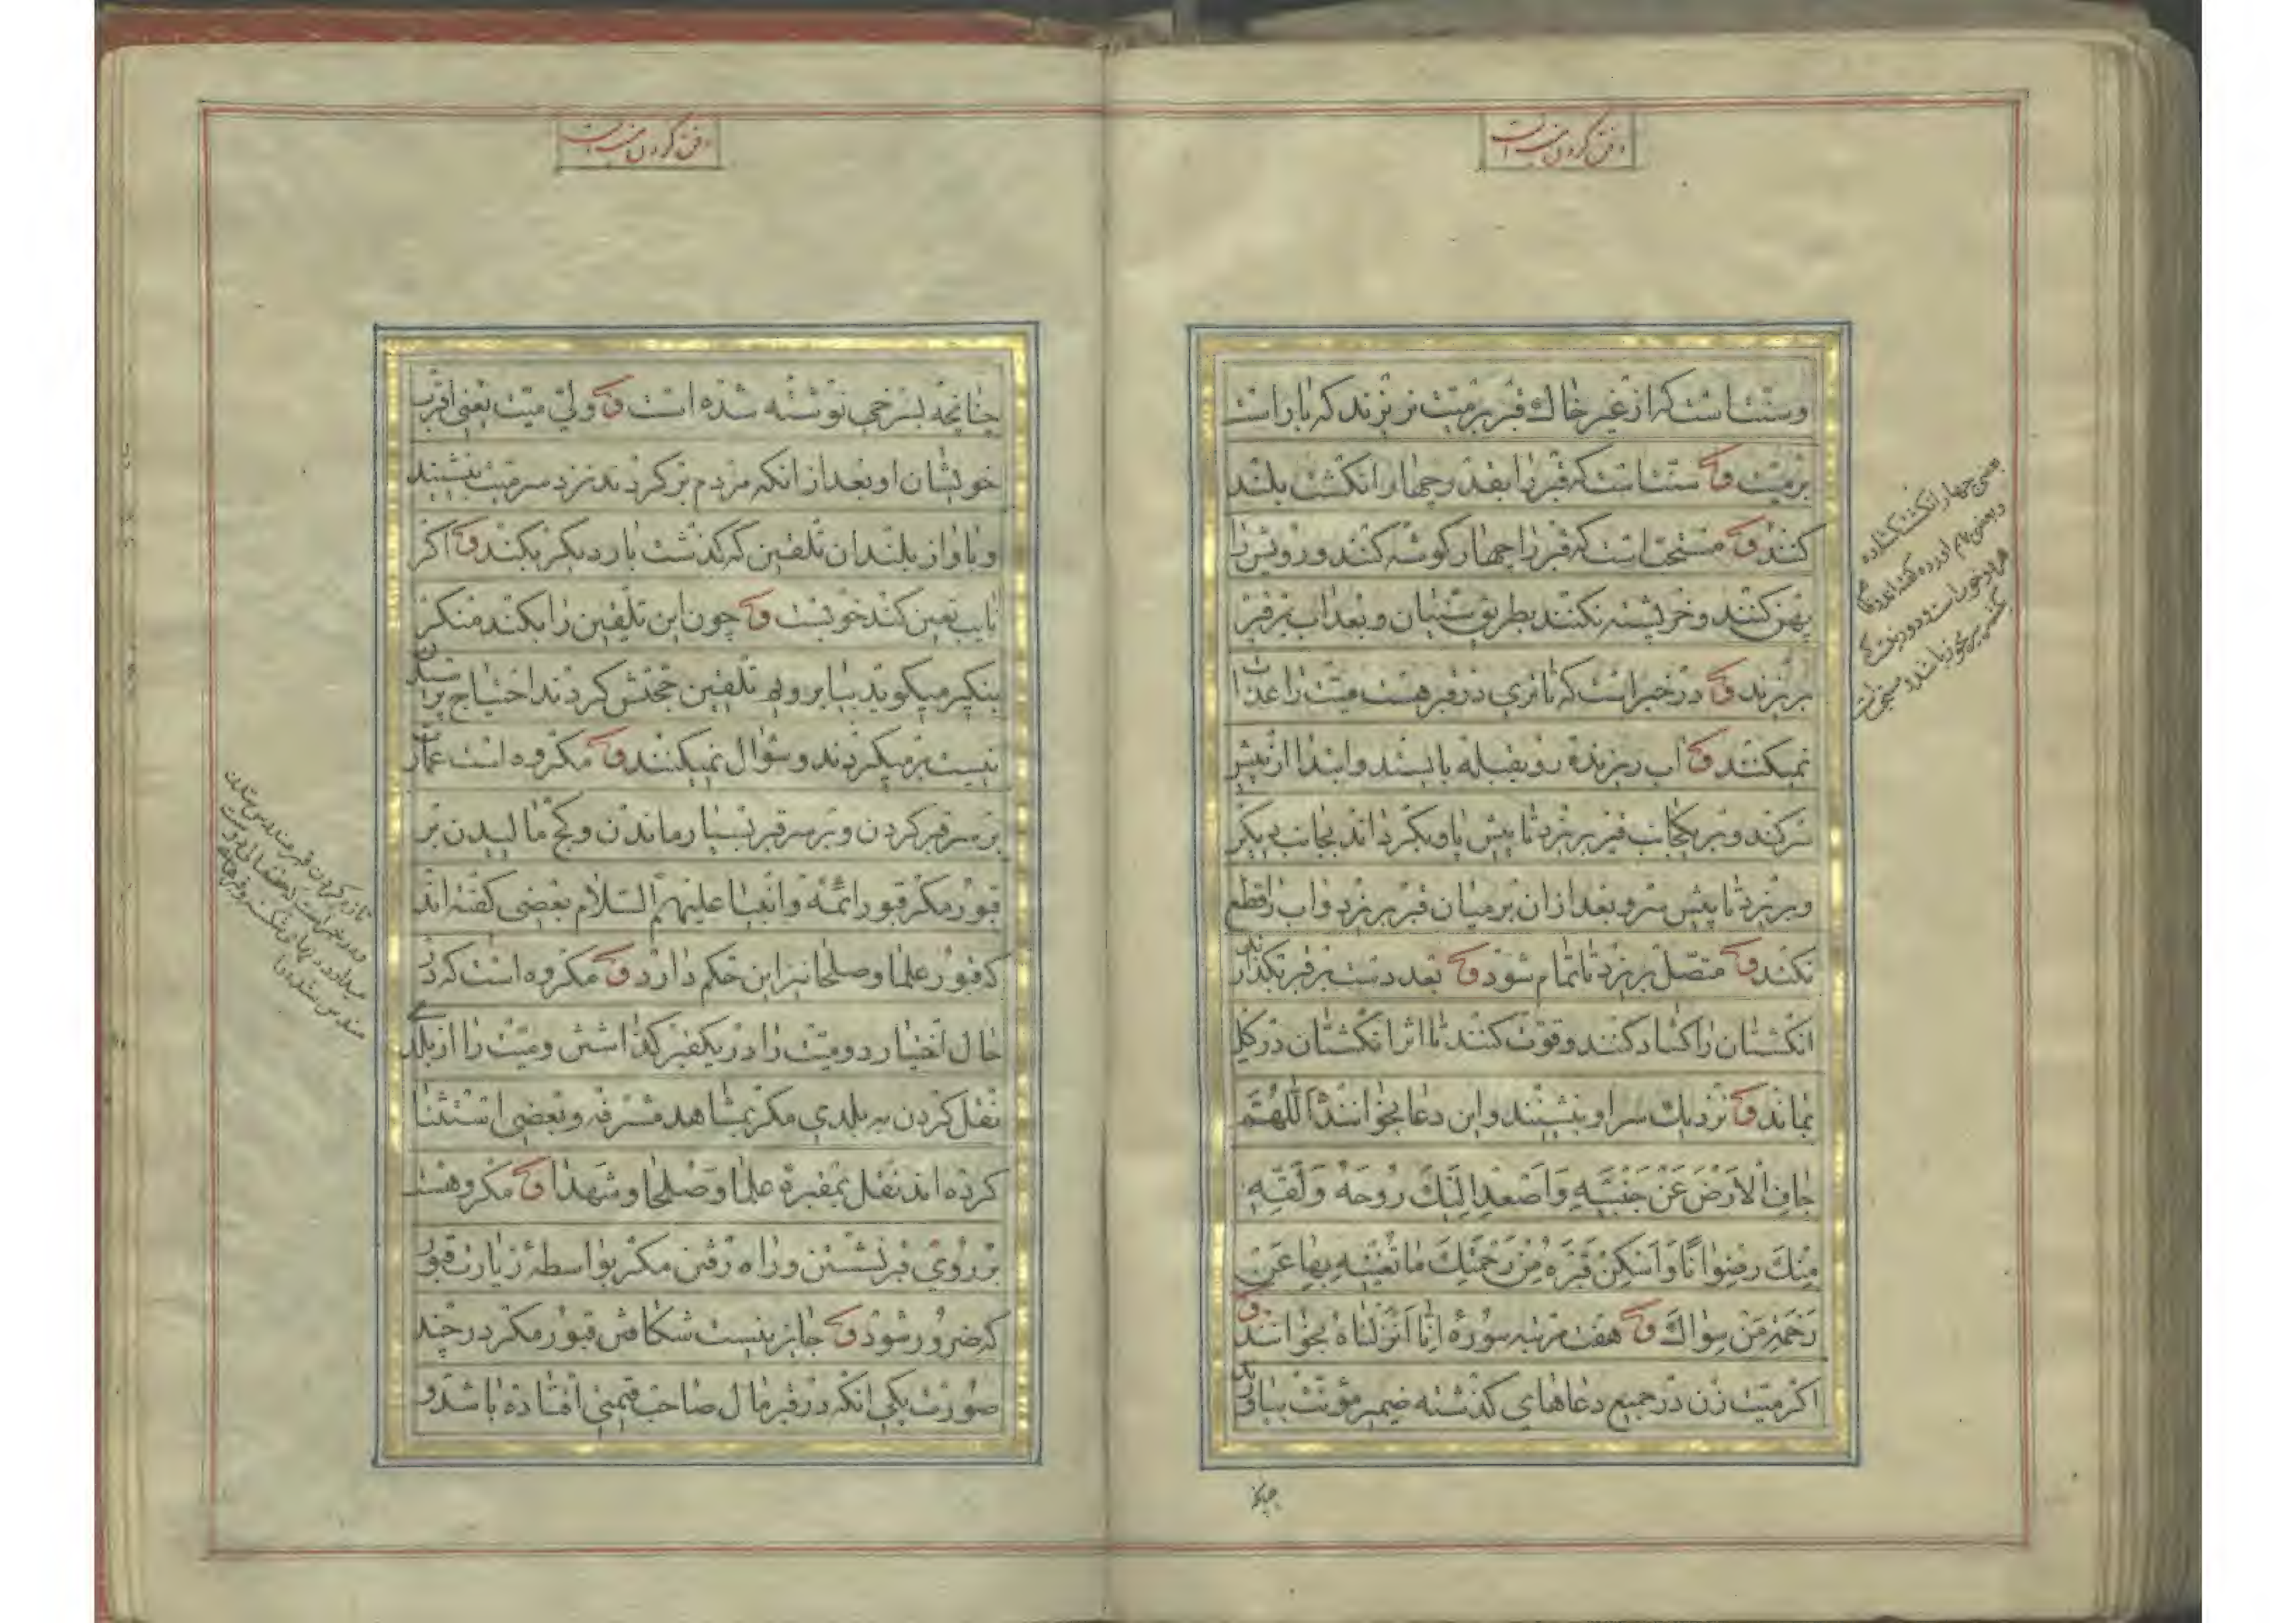 دفن کردن میت است
وسنت است که از غیر خاك قبر بر میت نریزند که باراست
بر میت ق سنت است که قبر را بقدر چهار انکشت بلند
کنند ق مستحب است که قبر را چهار کوشه کنند و رویش را
پهن کنند و خرپشته نکنند بطریق سنیان و بعد اب بر قبر
بریزند ق در خبر است که تا تری در قبر هست میت را عذاب
نمیکنند ق اب ریزنده رو بقبله بایستد و ابتدا از پیش
سر کند و بر یکجانب قبر بریزد تا پیش پا و بکرداند بجانب دیکر
و بریزد تا پیش سر و بعد از ان بر میان قبر بریزد و اب را قطع
نکند ق متصل بریزد تا تمام شود ق بعد دست بر قبر بکذارند
انکشتان را کشاد کنند و قوت کنند تا اثر انکشتان در کل
بماند ق نزدیك سر او بنشینند و این دعا بخوانند اَللّهُمَّ
جافِ الْاَرْضَ عَنْ جَنْبَیْهِ وَاَصْعِدْ اِلَیْكَ رُوحَهُ وَلَقِّهِ
مِنْكَ رِضْوانًا وَاَسْكِنْ قَبْرَهُ مِنْ رَحْمَتِكَ ما تُغْنیهِ بِها عَنْ
رَحْمَةِ مَنْ سِواكَ ق هفت مرتبه سوره اِنّا اَنْزَلْناهُ بخوانند ق
اکر میت زن در جمیع دعاهای کذشته ضمیر مؤنث بیاورند
بعضی چهار انکشت کشاده
و بعضی بهم اورده گفته اند
چنانچه
دفن کردن میت است
چنانچه بسرخی نوشته شده است ق ولی میت یعنی اقرب
خویشان او بعد از انکه مردم برکردند نزد سر میت بنشیند
و باواز بلند ان تلقین که کذشت بار دیکر بکند ق اکر
نایب تعین کند خوبست ق چون این تلقین را بکند منکر
بنکیر میکوید بیا برویم تلقین حجتش کردند احتیاج پرسیدن
نیست برمیکردند و سؤال نمیکنند ق مکروه است عمارت
بر سر قبر کردن و بر سر قبر بسیار ماندن و کچ مالیدن بر
قبور مکر قبور ائمّه و انبیا علیهم السلام بعضی کفته اند
که قبور علما و صلحا نیز این حکم دارد ق مکروه است که در
حال اختیار دو میت را در یکقبر کذاشتن و میت را از بلدی
نقل کردن به بلدی مکر بمشاهد مشرفه و بعضی استثنا
کرده اند نقل بمقبره علما و صلحا و شهدا ق مکروهست
بر روی قبر نشستن و راه رفتن مکر بواسطه زیارت قبور
که ضرور شود ق جایز نیست شکافتن قبور مکر در چند
صورت یکی انکه در قبر مال صاحب قیمتی افتاده باشد و
تازه کردن قبر مندرس شدن